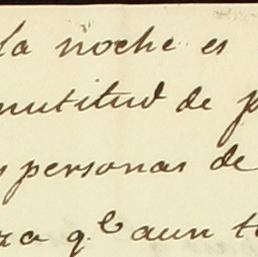 la noche es
mutitud de p
s personas de
za q.e aun t